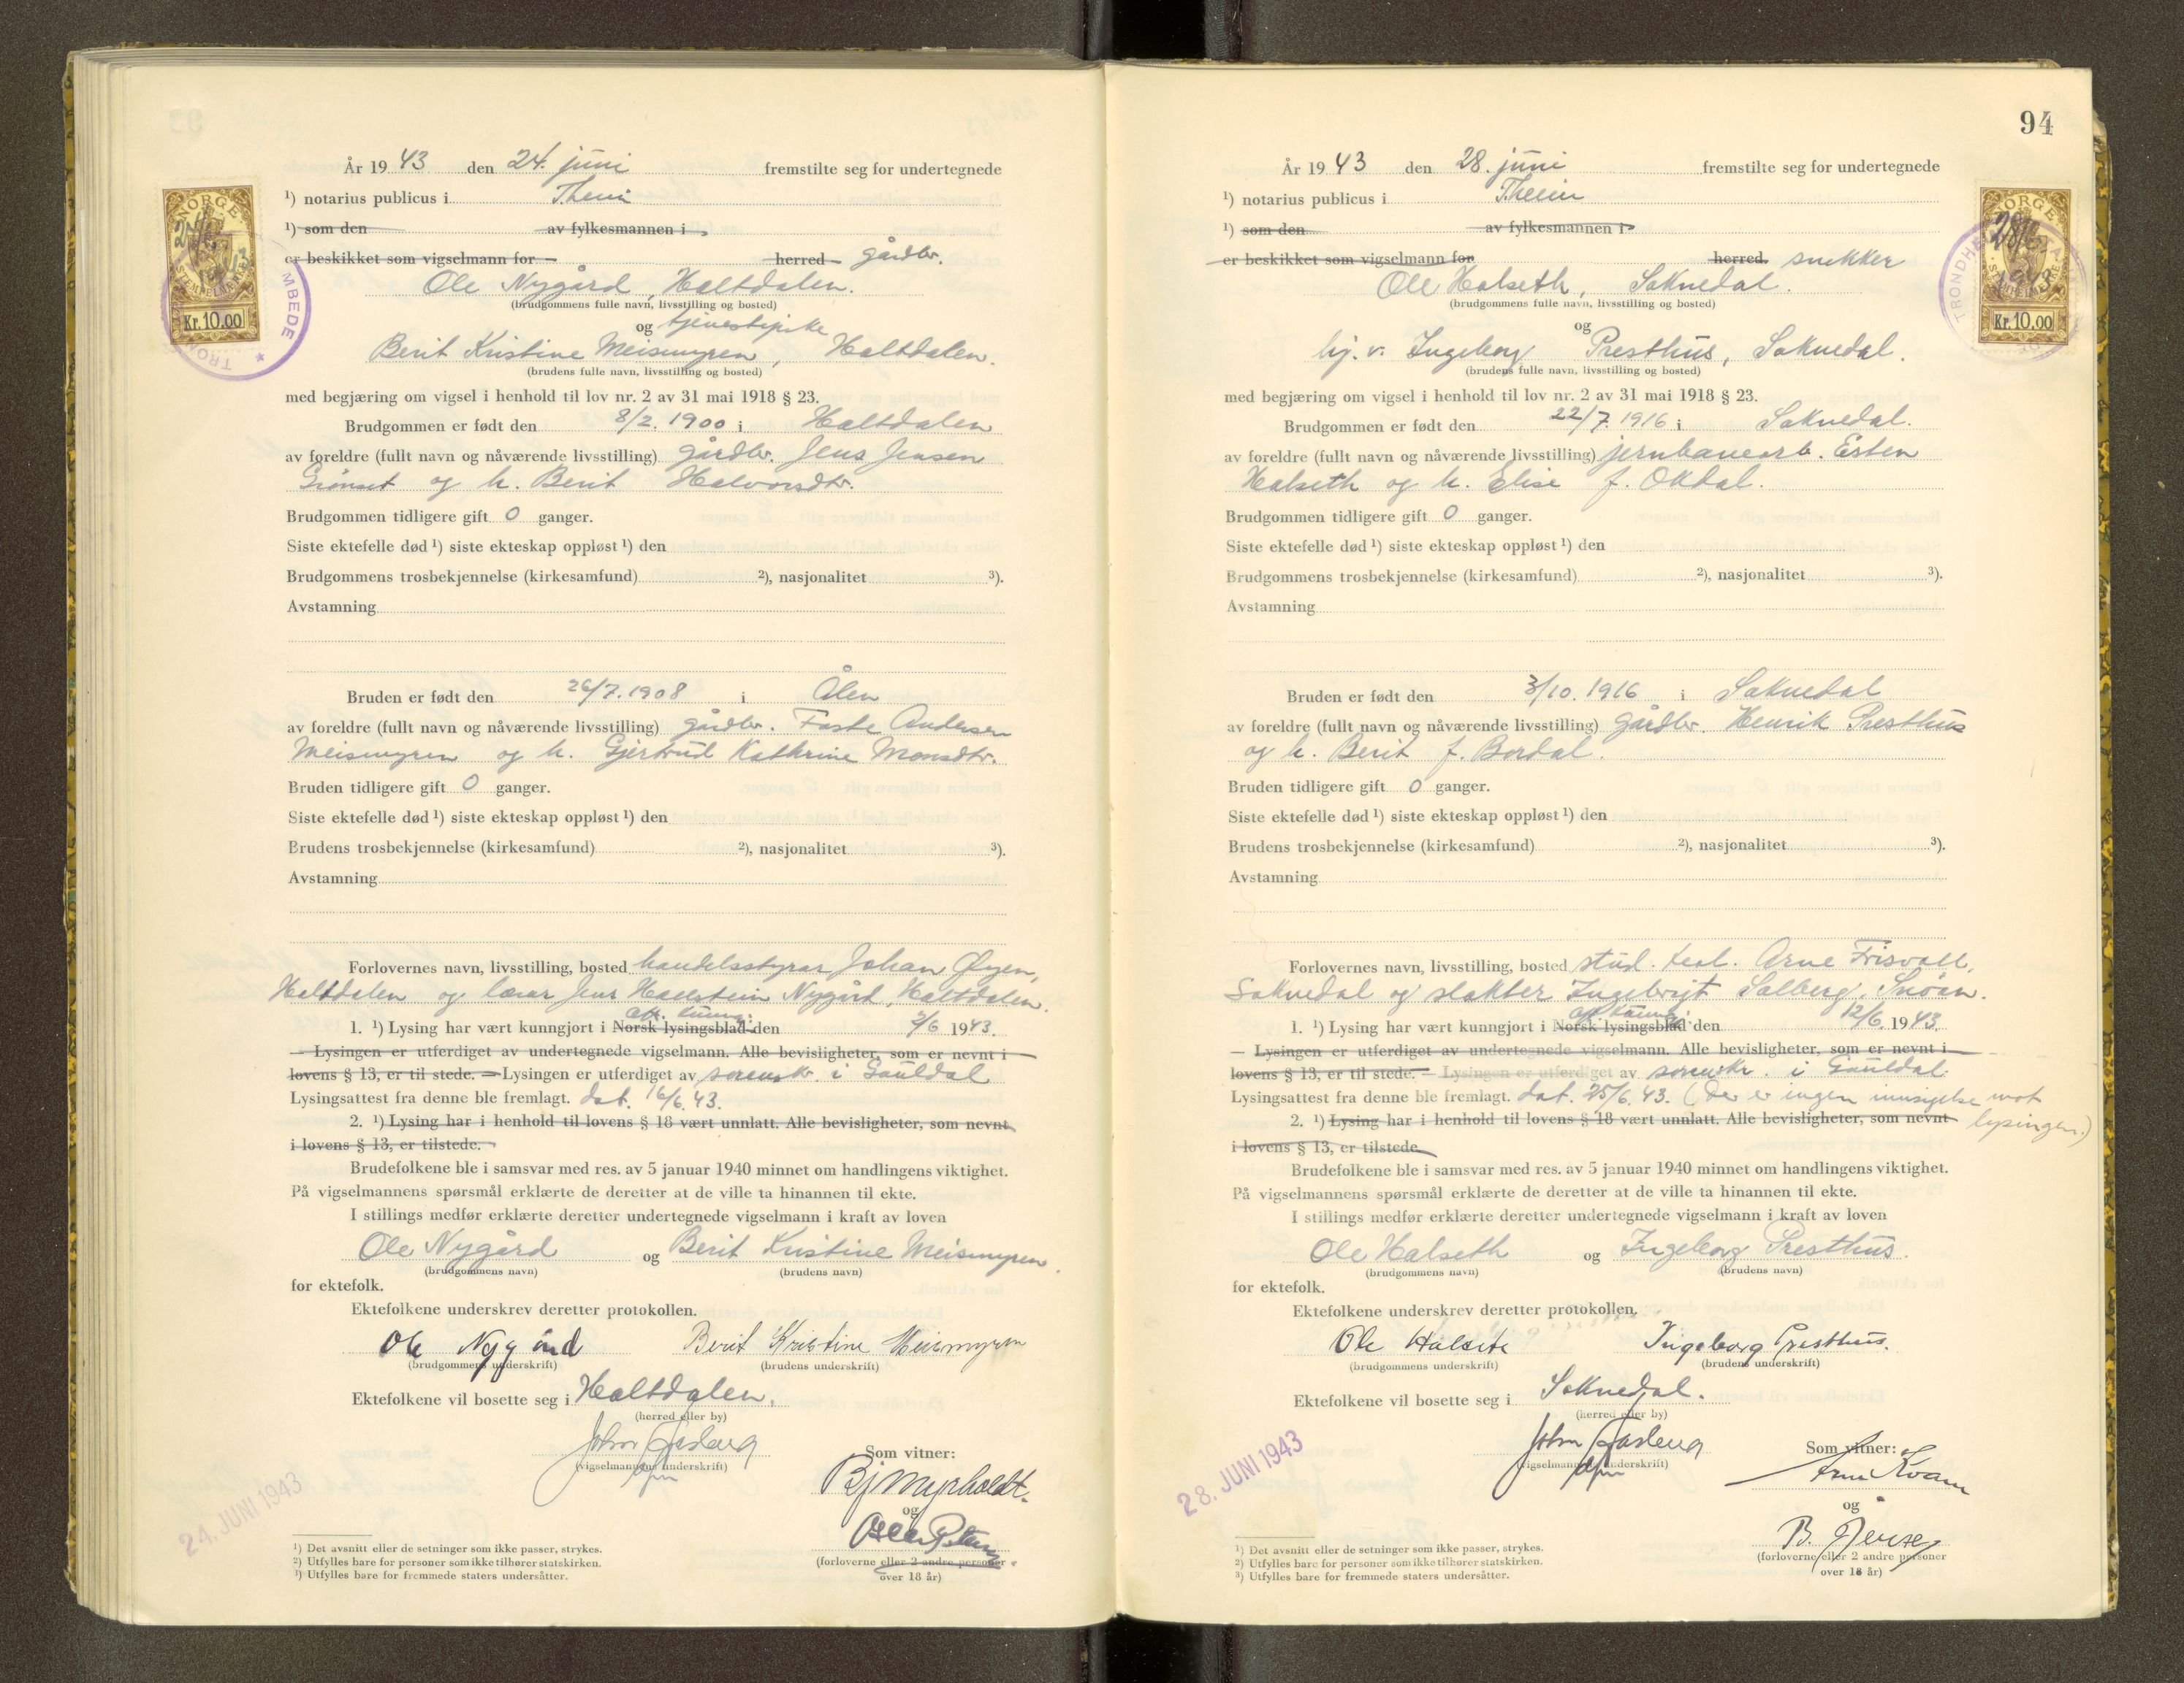 År 1943 den 24. juni fremstilte seg for undertegnede
¹) notarius publicus i Theim
¹) som den av fylkesmannen i
er beskikket som vigselmann for herred gårdbr.
Ole Nygård, Haltdalen.
(brudgommens fulle navn, livsstilling og bosted)
og tjenestepike
Berit Kristine Meismyren, Haltdalen.
(brudens fulle navn, livsstilling og bosted)
med begjæring om vigsel i henhold til lov nr. 2 av 31 mai 1918 § 23.
Brudgommen er født den 8/2. 1900 i Haltdalen
av foreldre (fullt navn og nåværende livsstilling) gårdbr. Jens Jensen
Grønset og h. Berit Halvorsdtr.
Brudgommen tidligere gift 0 ganger.
Siste ektefelle død ¹) siste ekteskap oppløst ¹) den
Brudgommens trosbekjennelse (kirkesamfund) ²), nasjonalitet ³).
Avstamning
Bruden er født den 26/7. 1908 i Ålen
av foreldre (fullt navn og nåværende livsstilling) gårdbr. Faste Andersen
Meismyren og h. Gjertrud Kathrine Monsdtr.
Bruden tidligere gift 0 ganger.
Siste ektefelle død ¹) siste ekteskap oppløst ¹) den
Brudens trosbekjennelse (kirkesamfund) ²), nasjonalitet ³).
Avstamning
Forlovernes navn, livsstilling, bosted handelsstyrar Johan Øyen,
Haltdalen og lærar Jens Hallstein Nygård, Haltdalen.
off. kunng:
1. ¹) Lysing har vært kunngjort i Norsk lysingsblad den 2/6 1943.
— Lysingen er utferdiget av undertegnede vigselmann. Alle bevisligheter, som er nevnt i
lovens § 13, er til stede. — Lysingen er utferdiget av sorenskr. i Gauldal
Lysingsattest fra denne ble fremlagt. dat. 16/6. 43.
2. ¹) Lysing har i henhold til lovens § 18 vært unnlatt. Alle bevisligheter, som nevnt
i lovens § 13, er tilstede.
Brudefolkene ble i samsvar med res. av 5 januar 1940 minnet om handlingens viktighet.
På vigselmannens spørsmål erklærte de deretter at de ville ta hinannen til ekte.
I stillings medfør erklærte deretter undertegnede vigselmann i kraft av loven
Ole Nygård og Berit Kristine Meismyren.
(brudgommens navn) (brudens navn)
for ektefolk.
Ektefolkene underskrev deretter protokollen.
Ole Nygård Berit Kristine Meismyren
(brudgommens underskrift) (brudens underskrift)
Ektefolkene vil bosette seg i Haltdalen.
(herred eller by)
(vigselmannens underskrift)
Som vitner:
Bj Myrholdt.
og
(forloverne eller 2 andre personer
over 18 år)
24. JUNI 1943
¹) Det avsnitt eller de setninger som ikke passer, strykes.
²) Utfylles bare for personer som ikke tilhører statskirken.
³) Utfylles bare for fremmede staters undersåtter.
NORGE
Kr. 10.00
94
År 1943 den 28. juni fremstilte seg for undertegnede
¹) notarius publicus i Theim
¹) som den av fylkesmannen i
er beskikket som vigselmann for herred. snekker
Ole Halseth, Soknedal.
(brudgommens fulle navn, livsstilling og bosted)
og
hj. v. Ingeborg Presthus, Soknedal.
(brudens fulle navn, livsstilling og bosted)
med begjæring om vigsel i henhold til lov nr. 2 av 31 mai 1918 § 23.
Brudgommen er født den 22/7. 1916 i Soknedal.
av foreldre (fullt navn og nåværende livsstilling) jernbanearb. Esten
Halseth og h. Elise f. Okdal.
Brudgommen tidligere gift 0 ganger.
Siste ektefelle død ¹) siste ekteskap oppløst ¹) den
Brudgommens trosbekjennelse (kirkesamfund) ²), nasjonalitet ³).
Avstamning
Bruden er født den 3/10. 1916 i Soknedal
av foreldre (fullt navn og nåværende livsstilling) gårdbr. Henrik Presthus
og h. Berit f. Bordal.
Bruden tidligere gift 0 ganger.
Siste ektefelle død ¹) siste ekteskap oppløst ¹) den
Brudens trosbekjennelse (kirkesamfund) ²), nasjonalitet ³).
Avstamning
Forlovernes navn, livsstilling, bosted stud. teol. Arne Frisvoll,
Soknedal og slakter Ingebrigt Solberg, Snøan.
off. kunng:
1. ¹) Lysing har vært kunngjort i Norsk lysingsblad den 12/6. 1943.
— Lysingen er utferdiget av undertegnede vigselmann. Alle bevisligheter, som er nevnt i
lovens § 13, er til stede. — Lysingen er utferdiget av sorenskr. i Gauldal
Lysingsattest fra denne ble fremlagt. dat. 25/6. 43. (Der er ingen innsigelse mot
2. ¹) Lysing har i henhold til lovens § 18 vært unnlatt. Alle bevisligheter, som nevnt lysingen.)
i lovens § 13, er tilstede.
Brudefolkene ble i samsvar med res. av 5 januar 1940 minnet om handlingens viktighet.
På vigselmannens spørsmål erklærte de deretter at de ville ta hinannen til ekte.
I stillings medfør erklærte deretter undertegnede vigselmann i kraft av loven
Ole Halseth og Ingeborg Presthus.
(brudgommens navn) (brudens navn)
for ektefolk.
Ektefolkene underskrev deretter protokollen.
Ole Halseth Ingeborg Presthus.
(brudgommens underskrift) (brudens underskrift)
Ektefolkene vil bosette seg i Soknedal.
(herred eller by)
(vigselmannens underskrift)
Som vitner:
Arne Kvam
og
B. Jensen
(forloverne eller 2 andre personer
over 18 år)
28. JUNI 1943
¹) Det avsnitt eller de setninger som ikke passer, strykes.
²) Utfylles bare for personer som ikke tilhører statskirken.
³) Utfylles bare for fremmede staters undersåtter.
NORGE
28/6
1943
Kr. 10.00